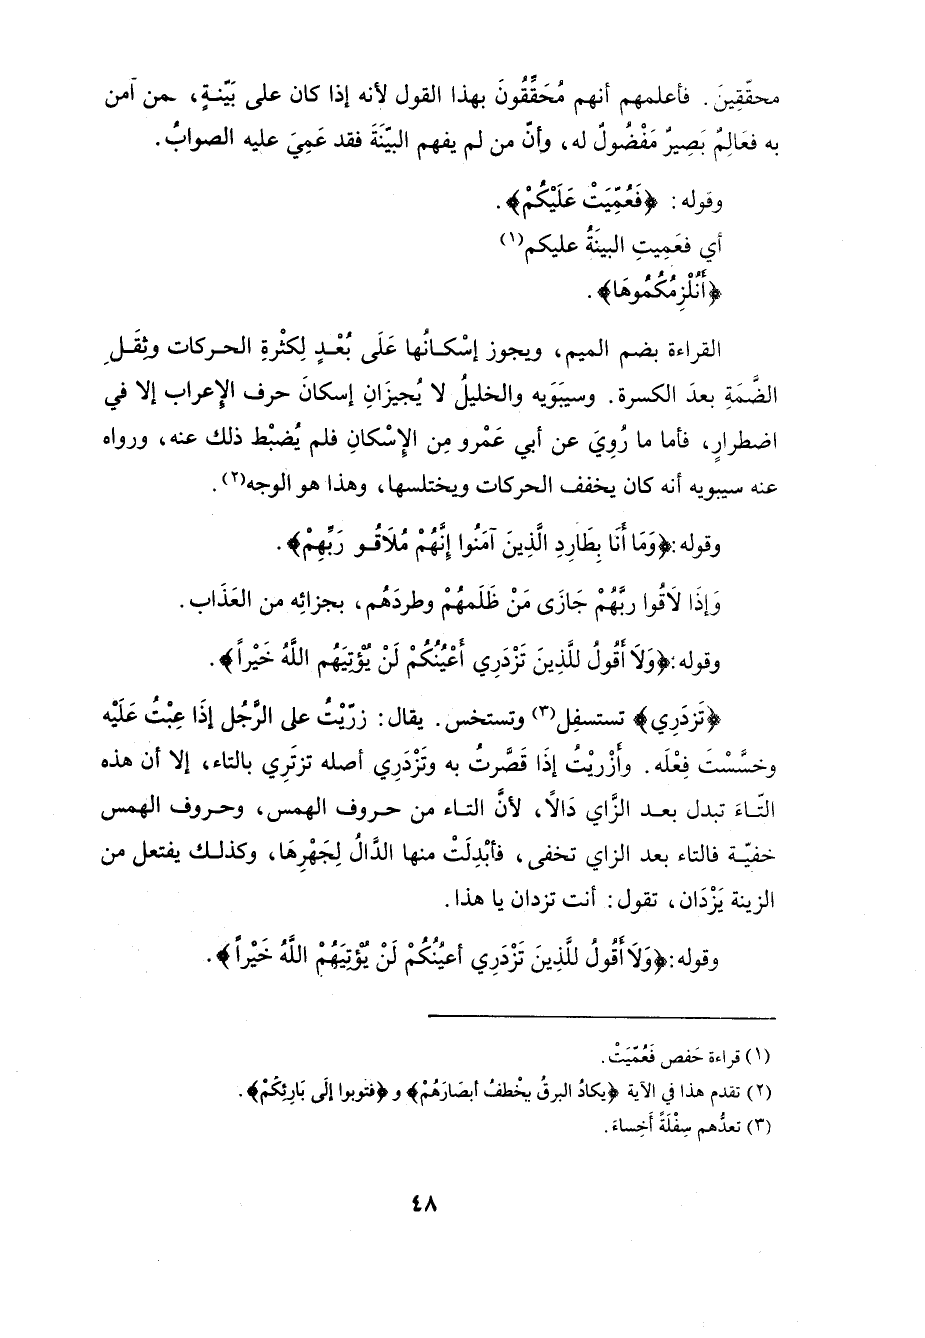 محقّقِينَ. فأعلمهم أنهم مُحَقَّقُونَ بهذا القول لأنه إذا كان على بَيّنةٍ، من آمن
به فعَالِمٌ بَصِيرٌ مَفْضُولٌ له، وأنّ من لم يفهم البيّنَةَ فقد عَمِيَ عليه الصوابُ.
وقوله: ﴿فَعُمِّيَتْ عَلَيْكُمْ﴾.
أي فعَمِيتِ البينَةُ عليكم(١)
﴿أَنُلْزِمُكُمُوهَا﴾.
القراءة بضم الميم، ويجوز إسْكانُها عَلَى بُعْدٍ لِكثْرةِ الحركات وثِقَلِ
الضَّمَةِ بعدَ الكسرة. وسيبَوَيه والخليلُ لا يُجيزَانِ إسكانَ حرف الإعراب إلا في
اضطرارٍ، فأما ما رُوِيَ عن أبي عَمْرو مِن الإِسْكانِ فلم يُضبْط ذلك عنه، ورواه
عنه سيبويه أنه كان يخفف الحركات ويختلسها، وهذا هو الوجه(٢).
وقوله:﴿وَمَا أَنَا بِطَارِدِ الَّذِينَ آمَنُوا إِنَّهُمْ مُلَاقُو رَبِّهِمْ﴾.
وَإذَا لاَقُوا ربَّهُمْ جَازَى مَنْ ظَلَمهُمْ وطردَهُم، بجزائِه من العَذَاب.
وقوله:﴿وَلاَ أَقُولُ للَّذِينَ تَزْدَرِي أَعْيُنُكُمْ لَنْ يُؤْتِيَهُم اللَّهُ خَيْراً﴾.
﴿تَزدَرِي﴾ تستسفِل(٣) وتستخس. يقال: زرّيْتُ على الرَّجُل إذَا عِبْتُ عَلَيْه
وخسَّسْتَ فِعْلَه. وأَزْريْتُ إذَا قصَّرتُ به وتَزْدَرِي أصله تزتَرِي بالتاء، إلا أن هذه
التّاءَ تبدل بعد الزَّاي دَالًا، لأنَّ التاء من حروف الهمس، وحروف الهمس
خفيّة فالتاء بعد الزاي تخفى، فأبْدِلَتْ منها الدَّالُ لِجَهْرِهَا، وكذلك يفتعل من
الزينة يَزْدَان، تقول: أنت تزدان يا هذا.
وقوله:﴿وَلاَ أَقُولُ للَّذِينَ تَزْدَرِي أعيُنُكُمْ لَنْ يُؤْتِيَهُمْ اللَّهُ خَيْراً﴾.
(١) قراءة حَفص فَعُمّيَتْ.
(٢) تقدم هذا في الآية ﴿يكادُ البرقُ يخْطفُ أبصَارَهُمْ﴾ و ﴿فتوبوا إلَى بَارِئِكُمْ﴾.
(٣) تعدُّهم سِفْلَةً أَخِساءَ.
٤٨